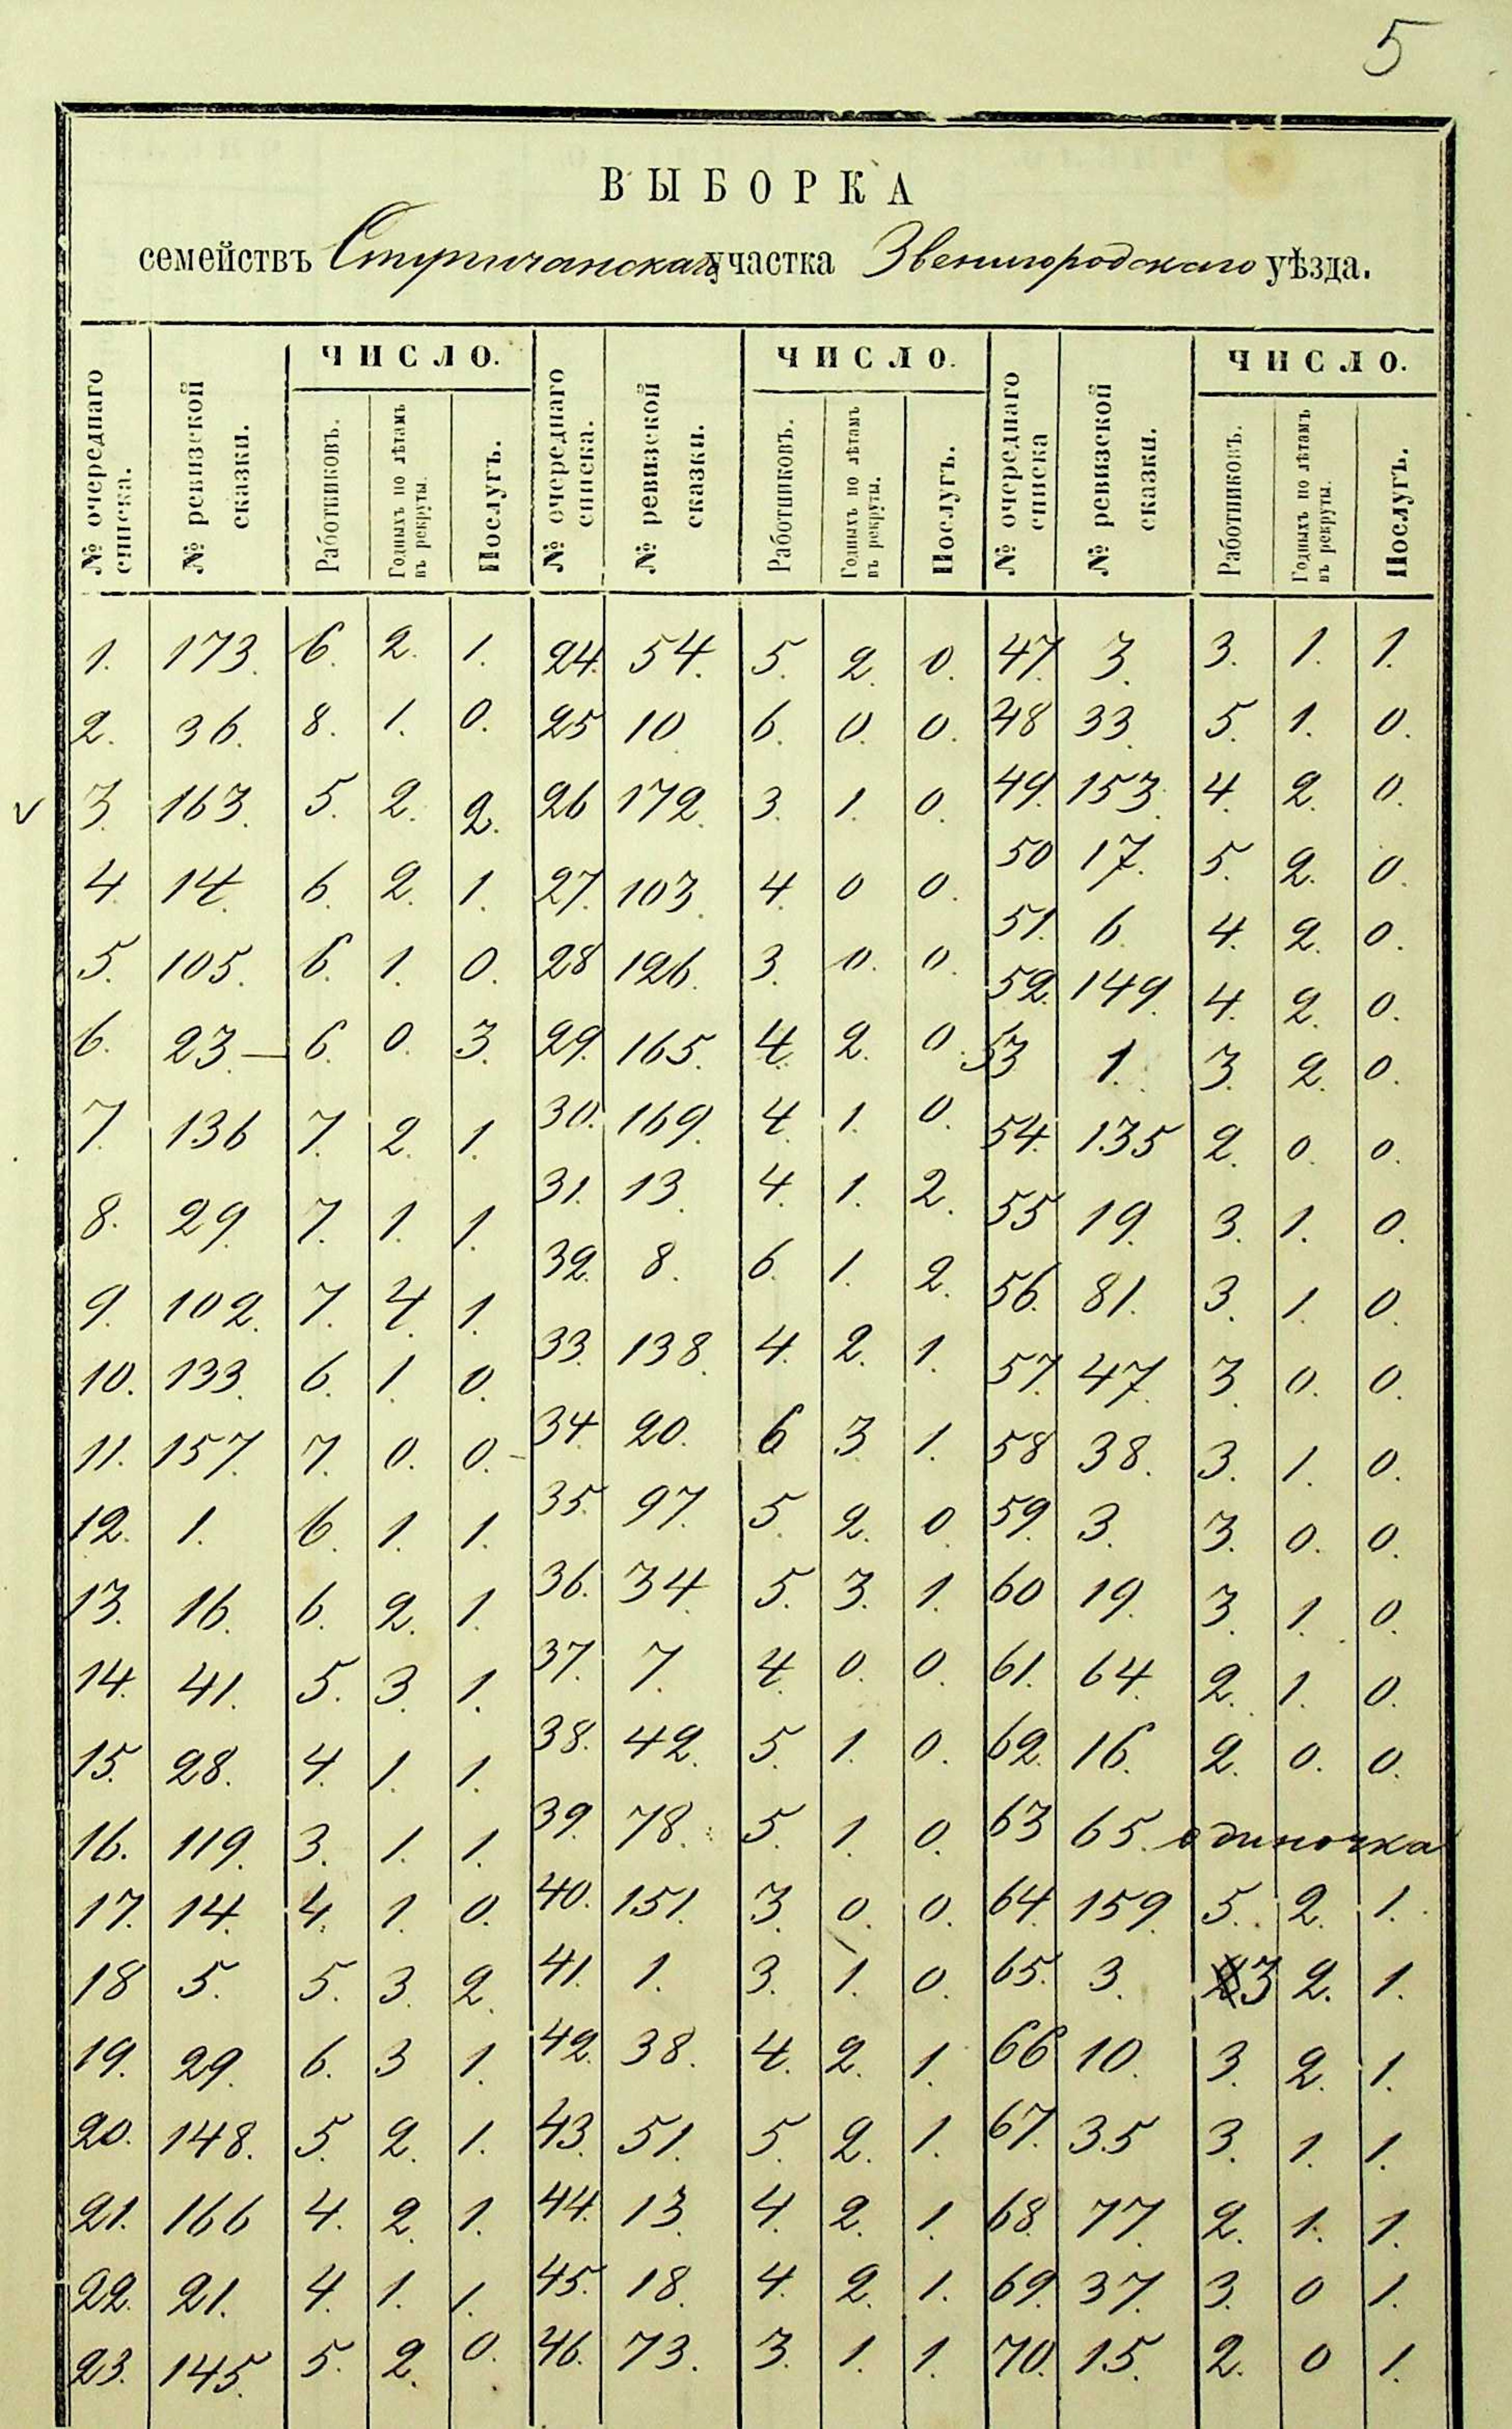 5
ВЫБОРКА
семействъ Стуричанскаго участка Звенигородскаго уѣзда.
ЧИСЛО. ЧИСЛО. ЧИСЛО.
№ очереднаго списка. № ревизской сказки. Работниковъ. Годныхъ по лѣтамъ въ рекруты. Послугъ. № очереднаго списка. № ревизской сказки. Работниковъ. Годныхъ по лѣтамъ въ рекруты. Послугъ. № очереднаго списка № ревизской сказки. Работниковъ. Годныхъ по лѣтамъ въ рекруты. Послугъ.
1. 173. 6. 2. 1. 24. 54. 5. 2. 0. 47. 3. 3. 1. 1.
2. 36. 8. 1. 0. 25 10 6. 0. 0. 48 33. 5. 1. 0.
v 3. 163. 5. 2. 2. 26 172. 3. 1. 0. 49. 153. 4. 2. 0.
4. 14. 6. 2. 1. 27. 103. 4. 0 0. 50 17. 5. 2. 0.
5. 105. 6. 1. 0. 28 126. 3. 0. 0. 51. 6. 4. 2. 0.
6. 23 — 6. 0. 3. 29. 165. 4. 2. 0. 52. 149. 4. 2. 0.
7. 136 7. 2. 1. 30. 169. 4. 1. 0. 53 1. 3. 2. 0.
8. 29. 7. 1. 1. 31. 13. 4. 1. 2. 54. 135 2. 0. 0.
9. 102. 7. 4. 1. 32. 8. 6. 1. 2. 55 19. 3. 1. 0.
10. 133. 6. 1. 0. 33. 138. 4. 2. 1. 56. 81. 3. 1. 0.
11. 157. 7. 0. 0. 34. 20. 6 3 1. 57. 47. 3. 0. 0.
12. 1. 6. 1. 1. 35. 97. 5. 2. 0. 58 38. 3. 1. 0.
13. 16. 6. 2. 1. 36. 34. 5. 3. 1. 59. 3. 3. 0. 0.
14. 41. 5. 3. 1. 37. 7. 4. 0. 0. 60 19. 3. 1. 0.
15. 28. 4. 1. 1. 38. 42. 5. 1. 0. 61. 64. 2. 1. 0.
16. 119. 3. 1. 1. 39. 78. 5. 1. 0. 62. 16. 2. 0. 0.
17. 14. 4. 1. 0. 40. 151. 3. 0. 0. 63 65. одиночка
18 5. 5. 3. 2. 41. 1. 3. 1. 0. 64. 159. 5. 2. 1.
19. 29. 6. 3 1. 42. 38. 4. 2. 1. 65. 3. 3 2. 1.
20. 148. 5. 2. 1. 43. 51. 5. 2. 1. 66 10. 3. 2. 1.
21. 166 4. 2. 1. 44. 13. 4. 2. 1. 67. 35 3. 1. 1.
22. 21. 4. 1. 1. 45. 18. 4. 2. 1. 68. 77. 2. 1. 1.
23. 145. 5. 2. 0. 46. 73. 3. 1. 1. 69. 37. 3. 0 1.
70. 15. 2. 0 1.